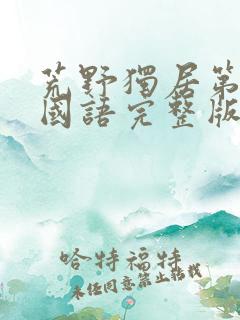 荒野獨居第
國語完整版
哈特福特
未任同意禁止轉載